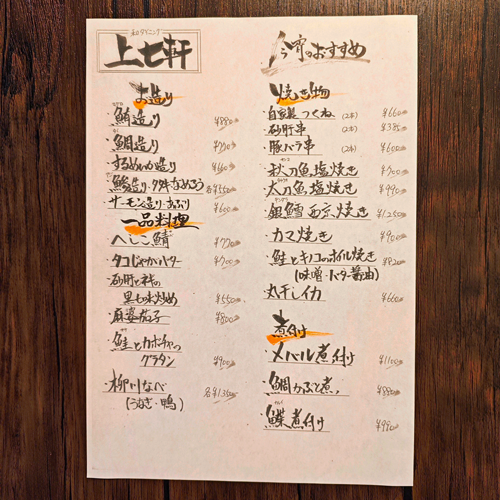 和ダイニング
上七軒
お造り
・鮪造り ¥880
・鯛造り ¥770
・するめいか造り ¥660
・サーモン造り・あぶり ¥600
一品料理
・へしこ鯖 ¥770
・タコじゃがバター ¥700
・砂肝と
黒七味炒め ¥550
・麻婆茄子 ¥800
・鮭とカボチャの
グラタン ¥900
・柳川なべ
(うなぎ・鴨)
今宵のおすすめ
焼き物
・自家製つくね (2本) ¥660
・砂肝串 (2本) ¥385
・豚バラ串 (2本) ¥600
・秋刀魚塩焼き ¥700
・太刀魚塩焼き ¥990
・銀鱈西京焼き ¥1250
・カマ焼き ¥900
・鮭とキノコのホイル焼き ¥920
(味噌・バター醤油)
・丸干しイカ ¥660
煮付け
・メバル煮付け ¥1100
・鯛かぶと煮 ¥880
・鰈煮付け ¥990